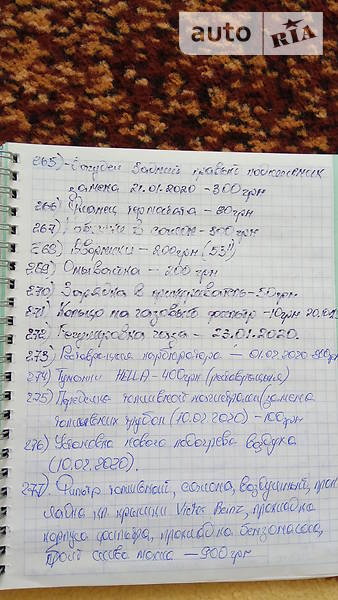 auto RIA
265) задний правый подшипник
замена 21.01.2020 - 300грн
266) Фланец термостата - 80грн
267) в салон - 300грн
268) Дворники - 200грн (53")
269) Омывайка - 200грн
270) Зарядка в прикуриватель - 50грн
271) Кольцо на газовый фильтр - 10грн
272) Регулировка газа - 23.01.2020.
273) Реставрация карбюратора - 01.02.2020
274) Туманки HELLA - 400грн (реставрация)
275) Переделка топливной магистрали (замена
топливных трубок (10.02.2020) - 100грн
276) Установка нового подогрева воздуха
(10.02.2020).
277) Фильтр топливный, салона, воздушный, прок
ладка кл. крышки Victor Reinz, прокладка
корпуса фильтра, прокладка бензонасоса,
слива масла - 900грн